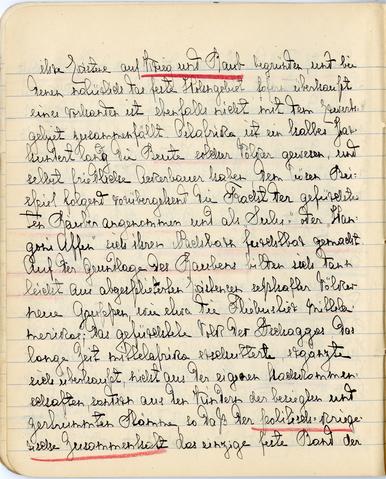 ihre Existenz auf Krieg und Raub begründen, und bei
denen natürlich das feste Wohngebiet sofern überhaupt
eines vorhanden ist ebenfalls nicht mit dem
zusammenfällt Ostafrika ist ein halbes Jahr
hundert lang die Beute solcher Völker gewesen, und
selbst friedliche Ackerbauer haben dem jenen Bei-
spiel folgend vorübergehend die Tracht der gefürchte-
ten Räuber angenommen und als "Sulu" oder "Man-
goni Affen" sich ihren Nachbarn furchtbar gemacht
Auf der Grundlage des Raubens bilden sich dann
leicht aus abgesplitterten Existenzen erschaffter Völker
neue Gruppen, wie etwa die Flibustier Mittela-
merikas; das gefürchtete Volk der Dschaggas das
lange Zeit Mittelafrika erschütterte ergänzte
sich überhaupt, nicht aus der eigenen Nachkommen-
schaften sondern aus den Kindern der besiegten und
Stämme, so daß der politisch-kriege-
rische Zusammenhalt das einzige feste Band der